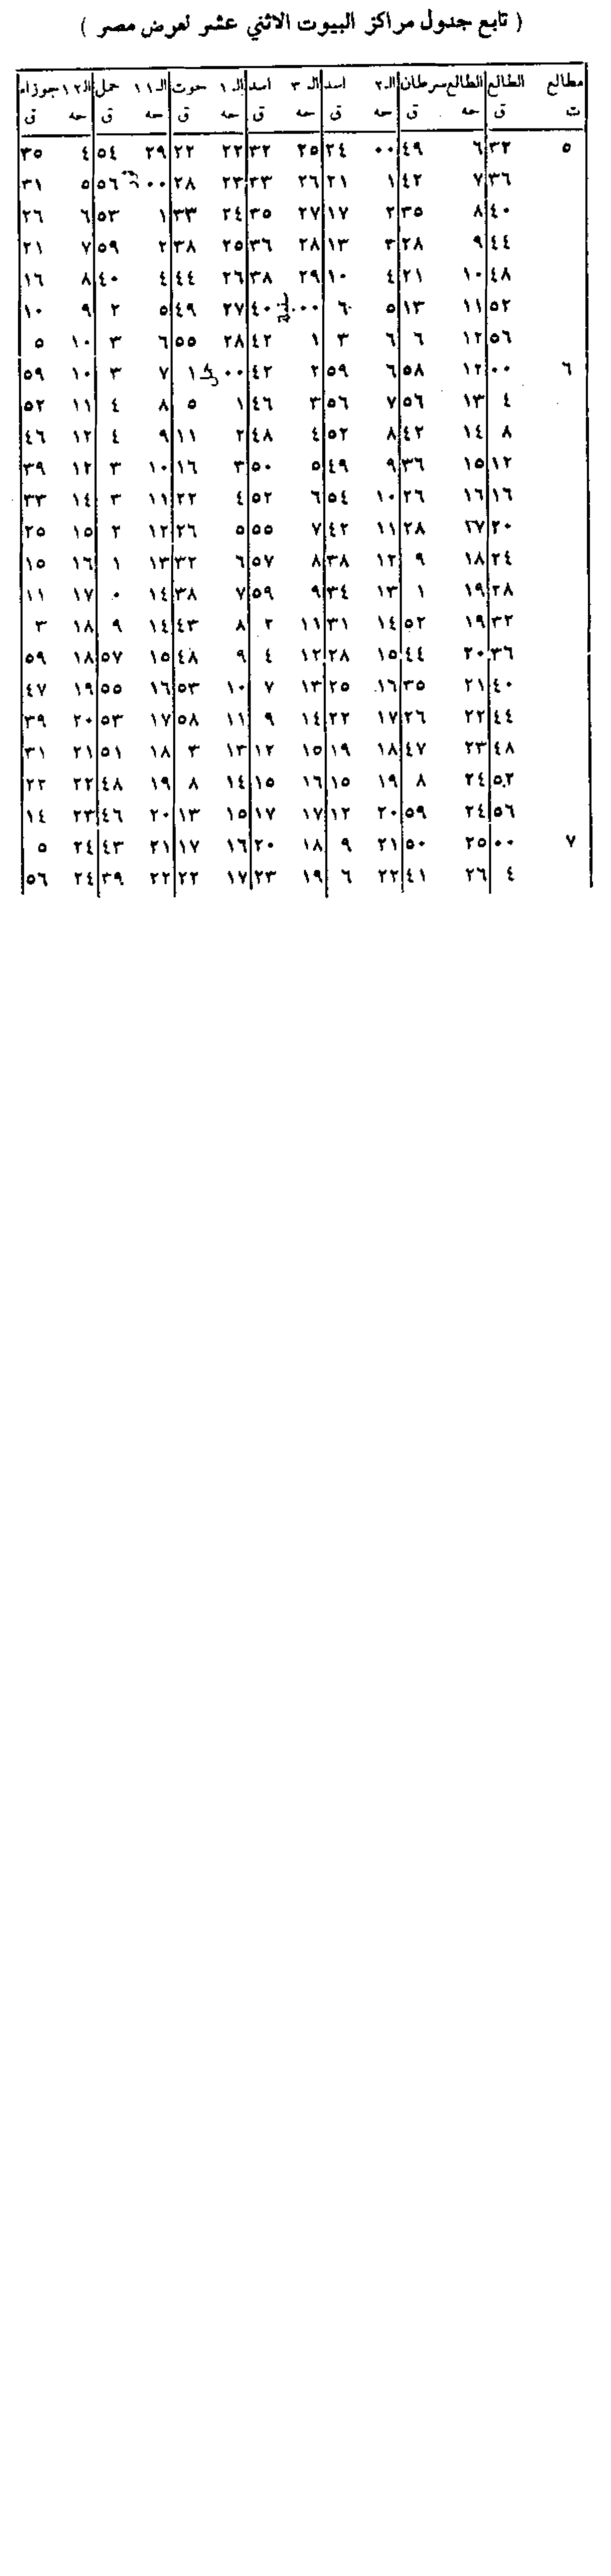 ( تابع جدول مراكز البيوت الاثني عشر لعرض مصر )
مطالع الطالع الطالع سرطان الـ٢ اسد الـ ٣ اسد الـ ١ حوت الـ ١١ حمل الـ ١٢ جوزاء
ت ق حه ق حه ق حه ق حه ق حه ق حه ق
٥ ٣٢ ٦ ٤٩ ٠٠ ٢٤ ٢٥ ٣٢ ٢٢ ٢٢ ٢٩ ٥٤ ٤ ٣٥
٣٦ ٧ ٤٢ ١ ٢١ ٢٦ ٣٣ ٢٣ ٢٨ ٠٠ ٥٦ ٥ ٣١
٤٠ ٨ ٣٥ ٢ ١٧ ٢٧ ٣٥ ٢٤ ٣٣ ١ ٥٣ ٦ ٢٦
٤٤ ٩ ٢٨ ٣ ١٣ ٢٨ ٣٦ ٢٥ ٣٨ ٢ ٥٩ ٧ ٢١
٤٨ ١٠ ٢١ ٤ ١٠ ٢٩ ٣٨ ٢٦ ٤٤ ٤ ٤٠ ٨ ١٦
٥٢ ١١ ١٣ ٥ ٦ ٠٠ ٤٠ ٢٧ ٤٩ ٥ ٢ ٩ ١٠
٥٦ ١٢ ٦ ٦ ٣ ١ ٤٢ ٢٨ ٥٥ ٦ ٣ ١٠ ٥
٦ ٠٠ ١٢ ٥٨ ٦ ٥٩ ٢ ٤٢ ٠٠ ١ ٧ ٣ ١٠ ٥٩
٤ ١٣ ٥٦ ٧ ٥٦ ٣ ٤٦ ١ ٥ ٨ ٤ ١١ ٥٢
٨ ١٤ ٤٢ ٨ ٥٢ ٤ ٤٨ ٢ ١١ ٩ ٤ ١٢ ٤٦
١٢ ١٥ ٣٦ ٩ ٤٩ ٥ ٥٠ ٣ ١٦ ١٠ ٣ ١٢ ٣٩
١٦ ١٦ ٢٦ ١٠ ٥٤ ٦ ٥٢ ٤ ٢٢ ١١ ٣ ١٤ ٣٣
٢٠ ١٧ ٢٨ ١١ ٤٢ ٧ ٥٥ ٥ ٢٦ ١٢ ٢ ١٥ ٢٥
٢٤ ١٨ ٩ ١٢ ٣٨ ٨ ٥٧ ٦ ٣٢ ١٣ ١ ١٦ ١٥
٢٨ ١٩ ١ ١٣ ٣٤ ٩ ٥٩ ٧ ٣٨ ١٤ ٠ ١٧ ١١
٣٢ ١٩ ٥٢ ١٤ ٣١ ١١ ٢ ٨ ٤٣ ١٤ ٩ ١٨ ٣
٣٦ ٢٠ ٤٤ ١٥ ٢٨ ١٢ ٤ ٩ ٤٨ ١٥ ٥٧ ١٨ ٥٩
٤٠ ٢١ ٣٥ ١٦ ٢٥ ١٣ ٧ ١٠ ٥٣ ١٦ ٥٥ ١٩ ٤٧
٤٤ ٢٢ ٢٦ ١٧ ٢٢ ١٤ ٩ ١١ ٥٨ ١٧ ٥٣ ٢٠ ٣٩
٤٨ ٢٣ ٤٧ ١٨ ١٩ ١٥ ١٢ ١٣ ٣ ١٨ ٥١ ٢١ ٣١
٥٢ ٢٤ ٨ ١٩ ١٥ ١٦ ١٥ ١٤ ٨ ١٩ ٤٨ ٢٢ ٢٢
٥٦ ٢٤ ٥٩ ٢٠ ١٢ ١٧ ١٧ ١٥ ١٣ ٢٠ ٤٦ ٢٣ ١٤
٧ ٠٠ ٢٥ ٥٠ ٢١ ٩ ١٨ ٢٠ ١٦ ١٧ ٢١ ٤٣ ٢٤ ٥
٤ ٢٦ ٤١ ٢٢ ٦ ١٩ ٢٣ ١٧ ٢٢ ٢٢ ٣٩ ٢٤ ٥٦